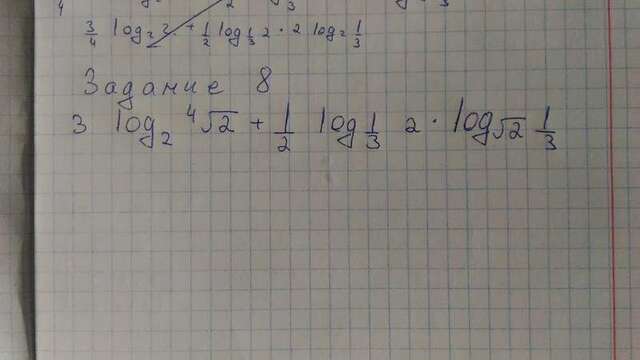 3/4 log₂ 2 + 1/2 log 1/3 2 · 2 log₂ 1/3
Задание 8
3 log₂ ⁴√2 + 1/2 log 1/3 2 · log √2 1/3